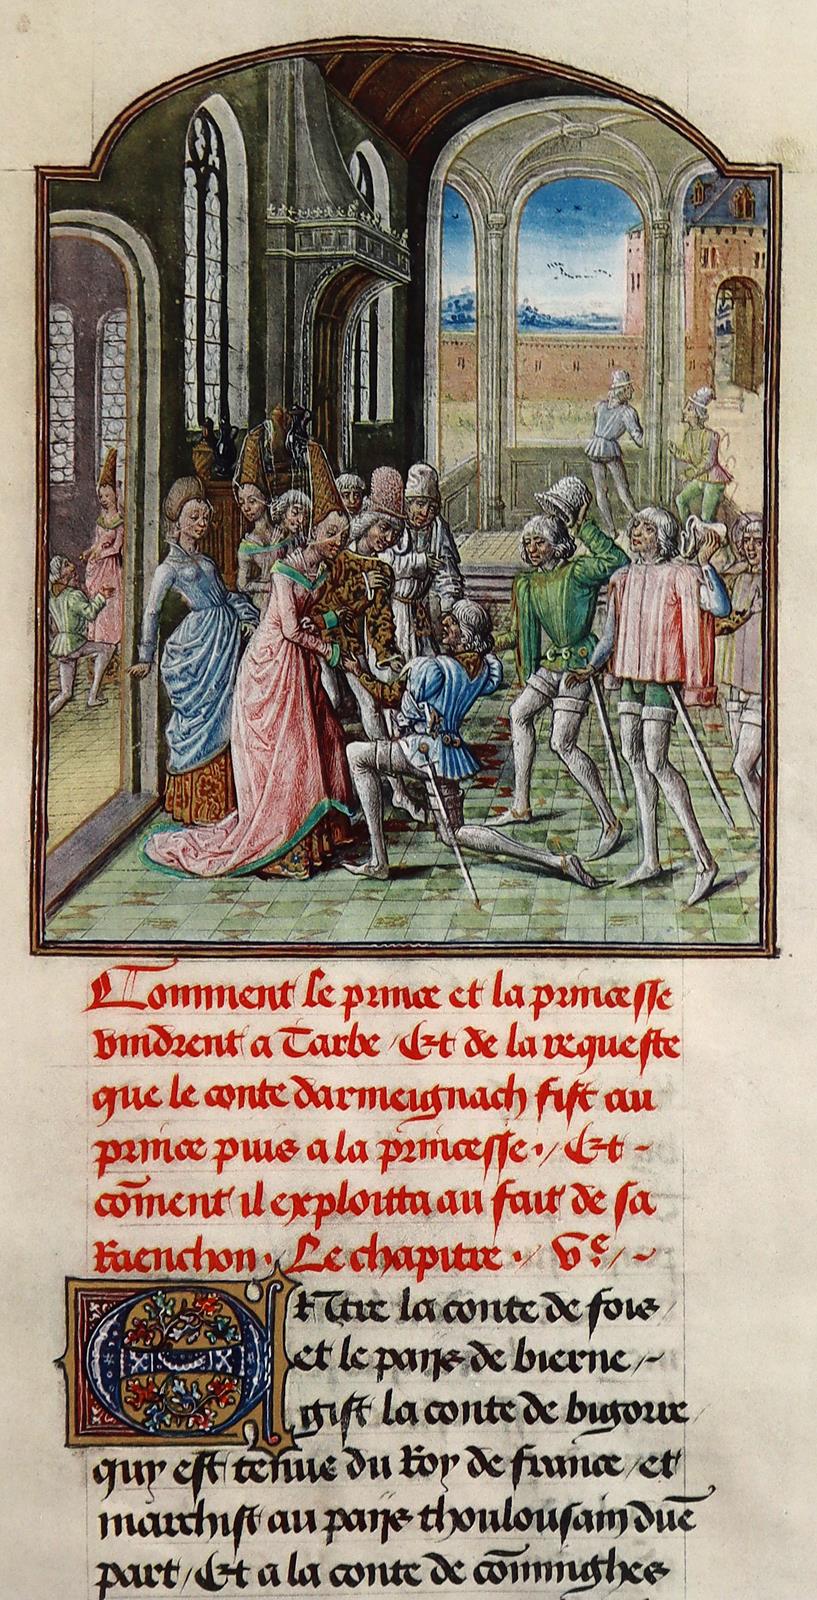 Comment le prince et la princesse
vindrent a Tarbe / Et de la requeste
que le conte darmeignach fist au
prince puis a la princesse ./ Et -
cōment il exploitta au fait de sa
Raenchon . Le chapitre . / Ve / ~
ENtre la conte de fois /
et le paijs de bierne / ~
gist la conte de bigorre /
quy est tenue du Roy de france / et
marchist au paijs thoulousain dune
part / Et a la conte de cōminghes